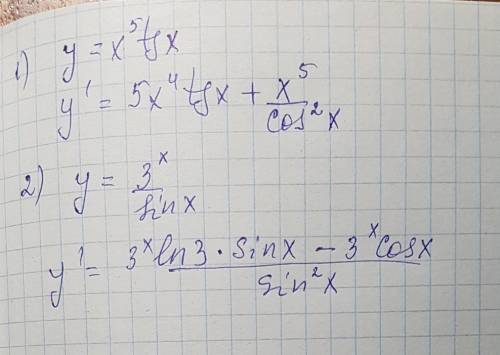 1) y = x⁵ tg x
y' = 5x⁴ tg x + x⁵/cos²x
2) y = 3ˣ/sin x
y' = (3ˣ ln 3 · sin x − 3ˣ cos x)/sin²x